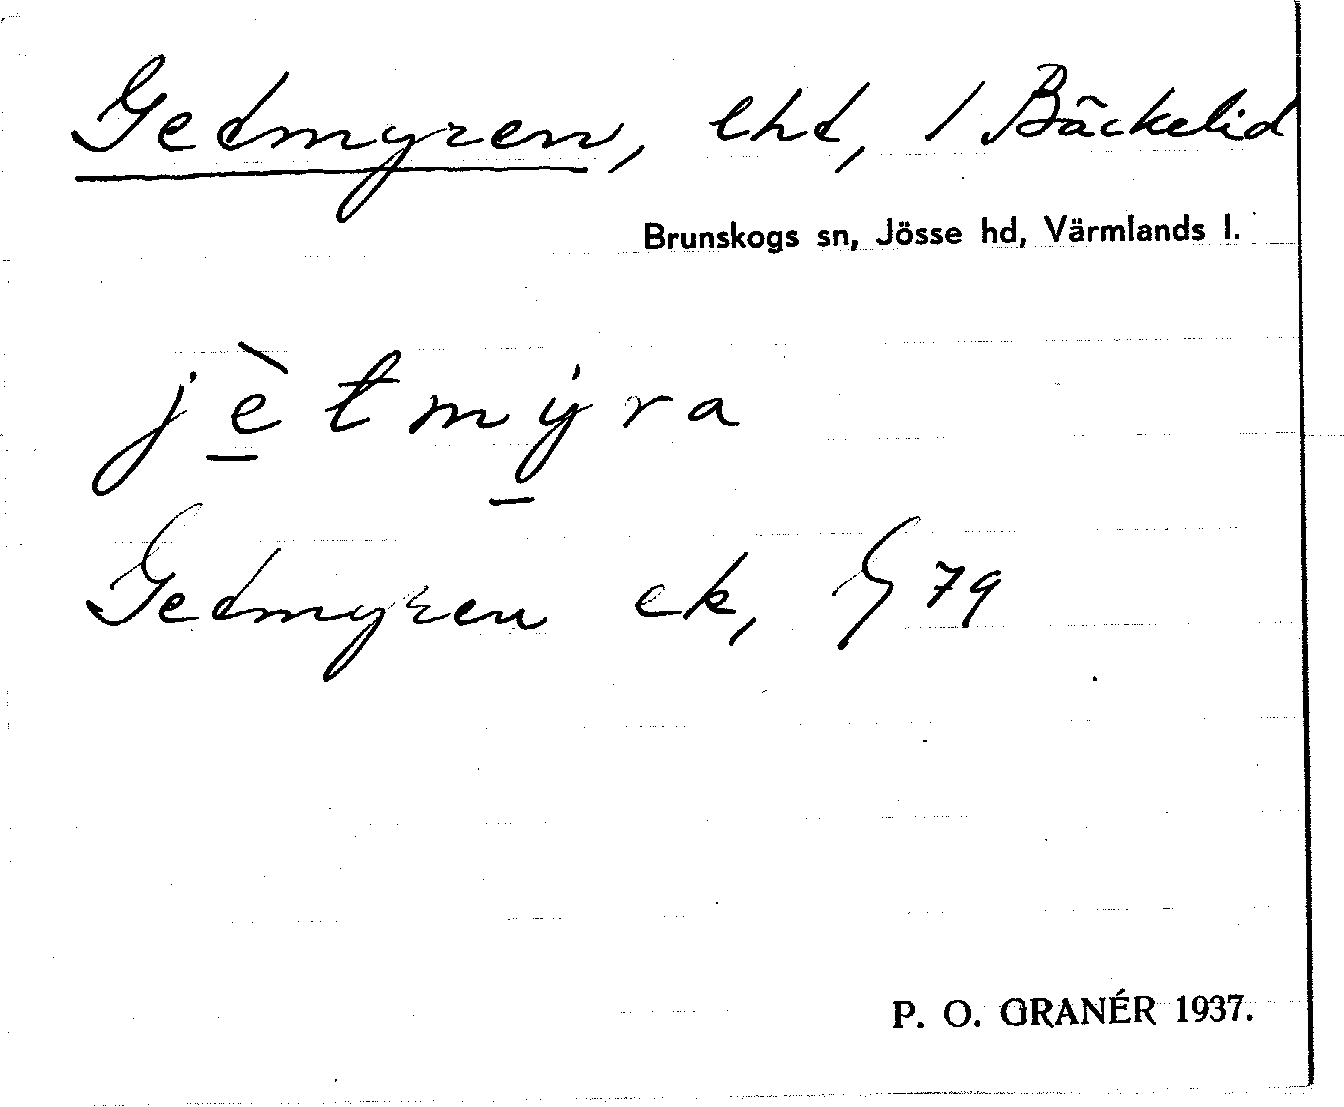 Getmyren, lht, / Bäckelid
Brunskogs sn, Jösse hd, Värmlands l.
jètmyra
Getmyren ek, G 79
P. O. GRANÉR 1937.